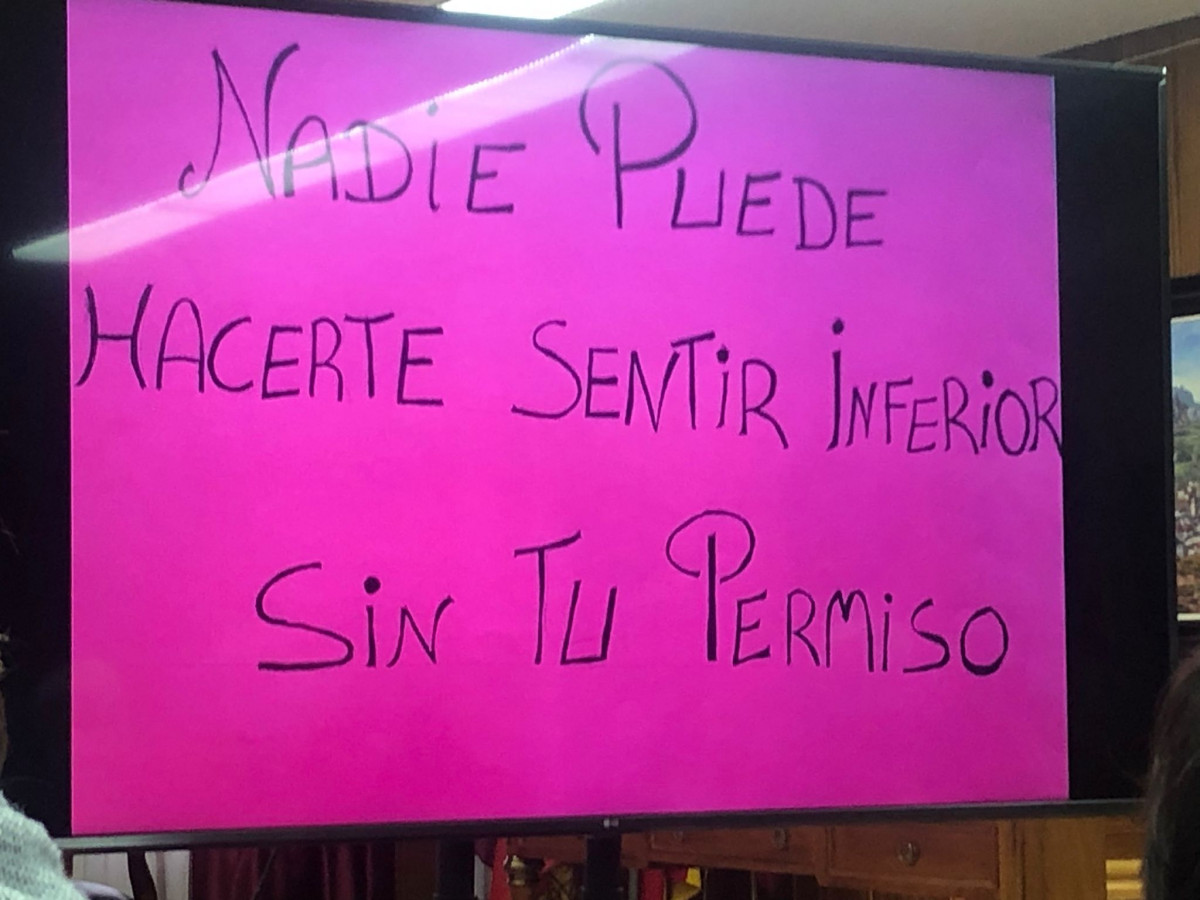 NADiE PUEDE
HACERTE SENTiR iNFERiOR
SiN TU PERMiSO